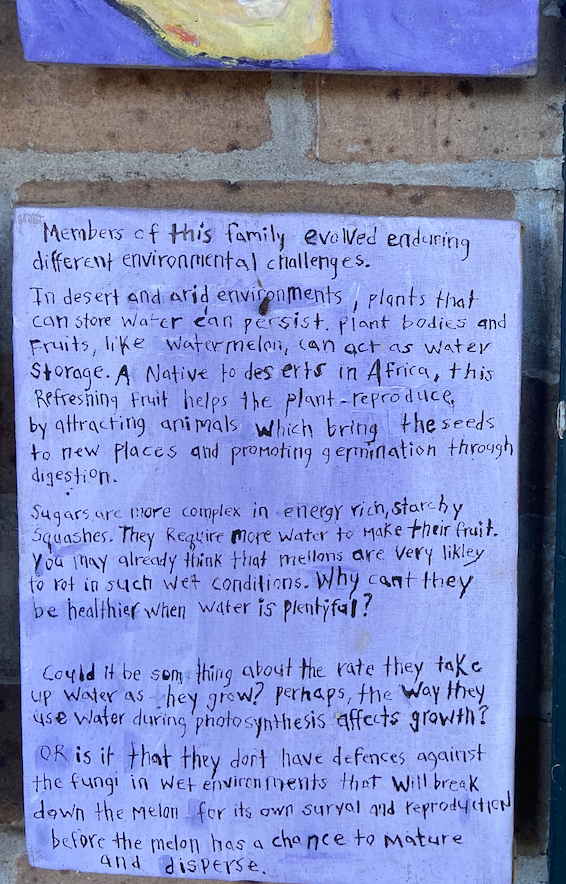 Members of this family evolved enduring
different environmental challenges.
In desert and arid environments, plants that
can store water can persist. plant bodies and
Fruits, like watermelon, can act as water
Storage. A Native to deserts in Africa, this
Refreshing fruit helps the plant-reproduce,
by attracting animals which bring the seeds
to new places and promoting germination through
digestion.
Sugars are more complex in energy rich, starchy
squashes. They Require more water to make their fruit.
You may already think that mellons are very likley
to rot in such wet conditions. Why cant they
be healthier when water is plentiful?
Could it be som thing about the rate they take
up water as hey grow? perhaps, the way they
use water during photosynthesis affects growth?
OR is it that they dont have defences against
the fungi in wet environments that will break
down the melon for its own surval and reproduction
before the melon has a chance to mature
and disperse.